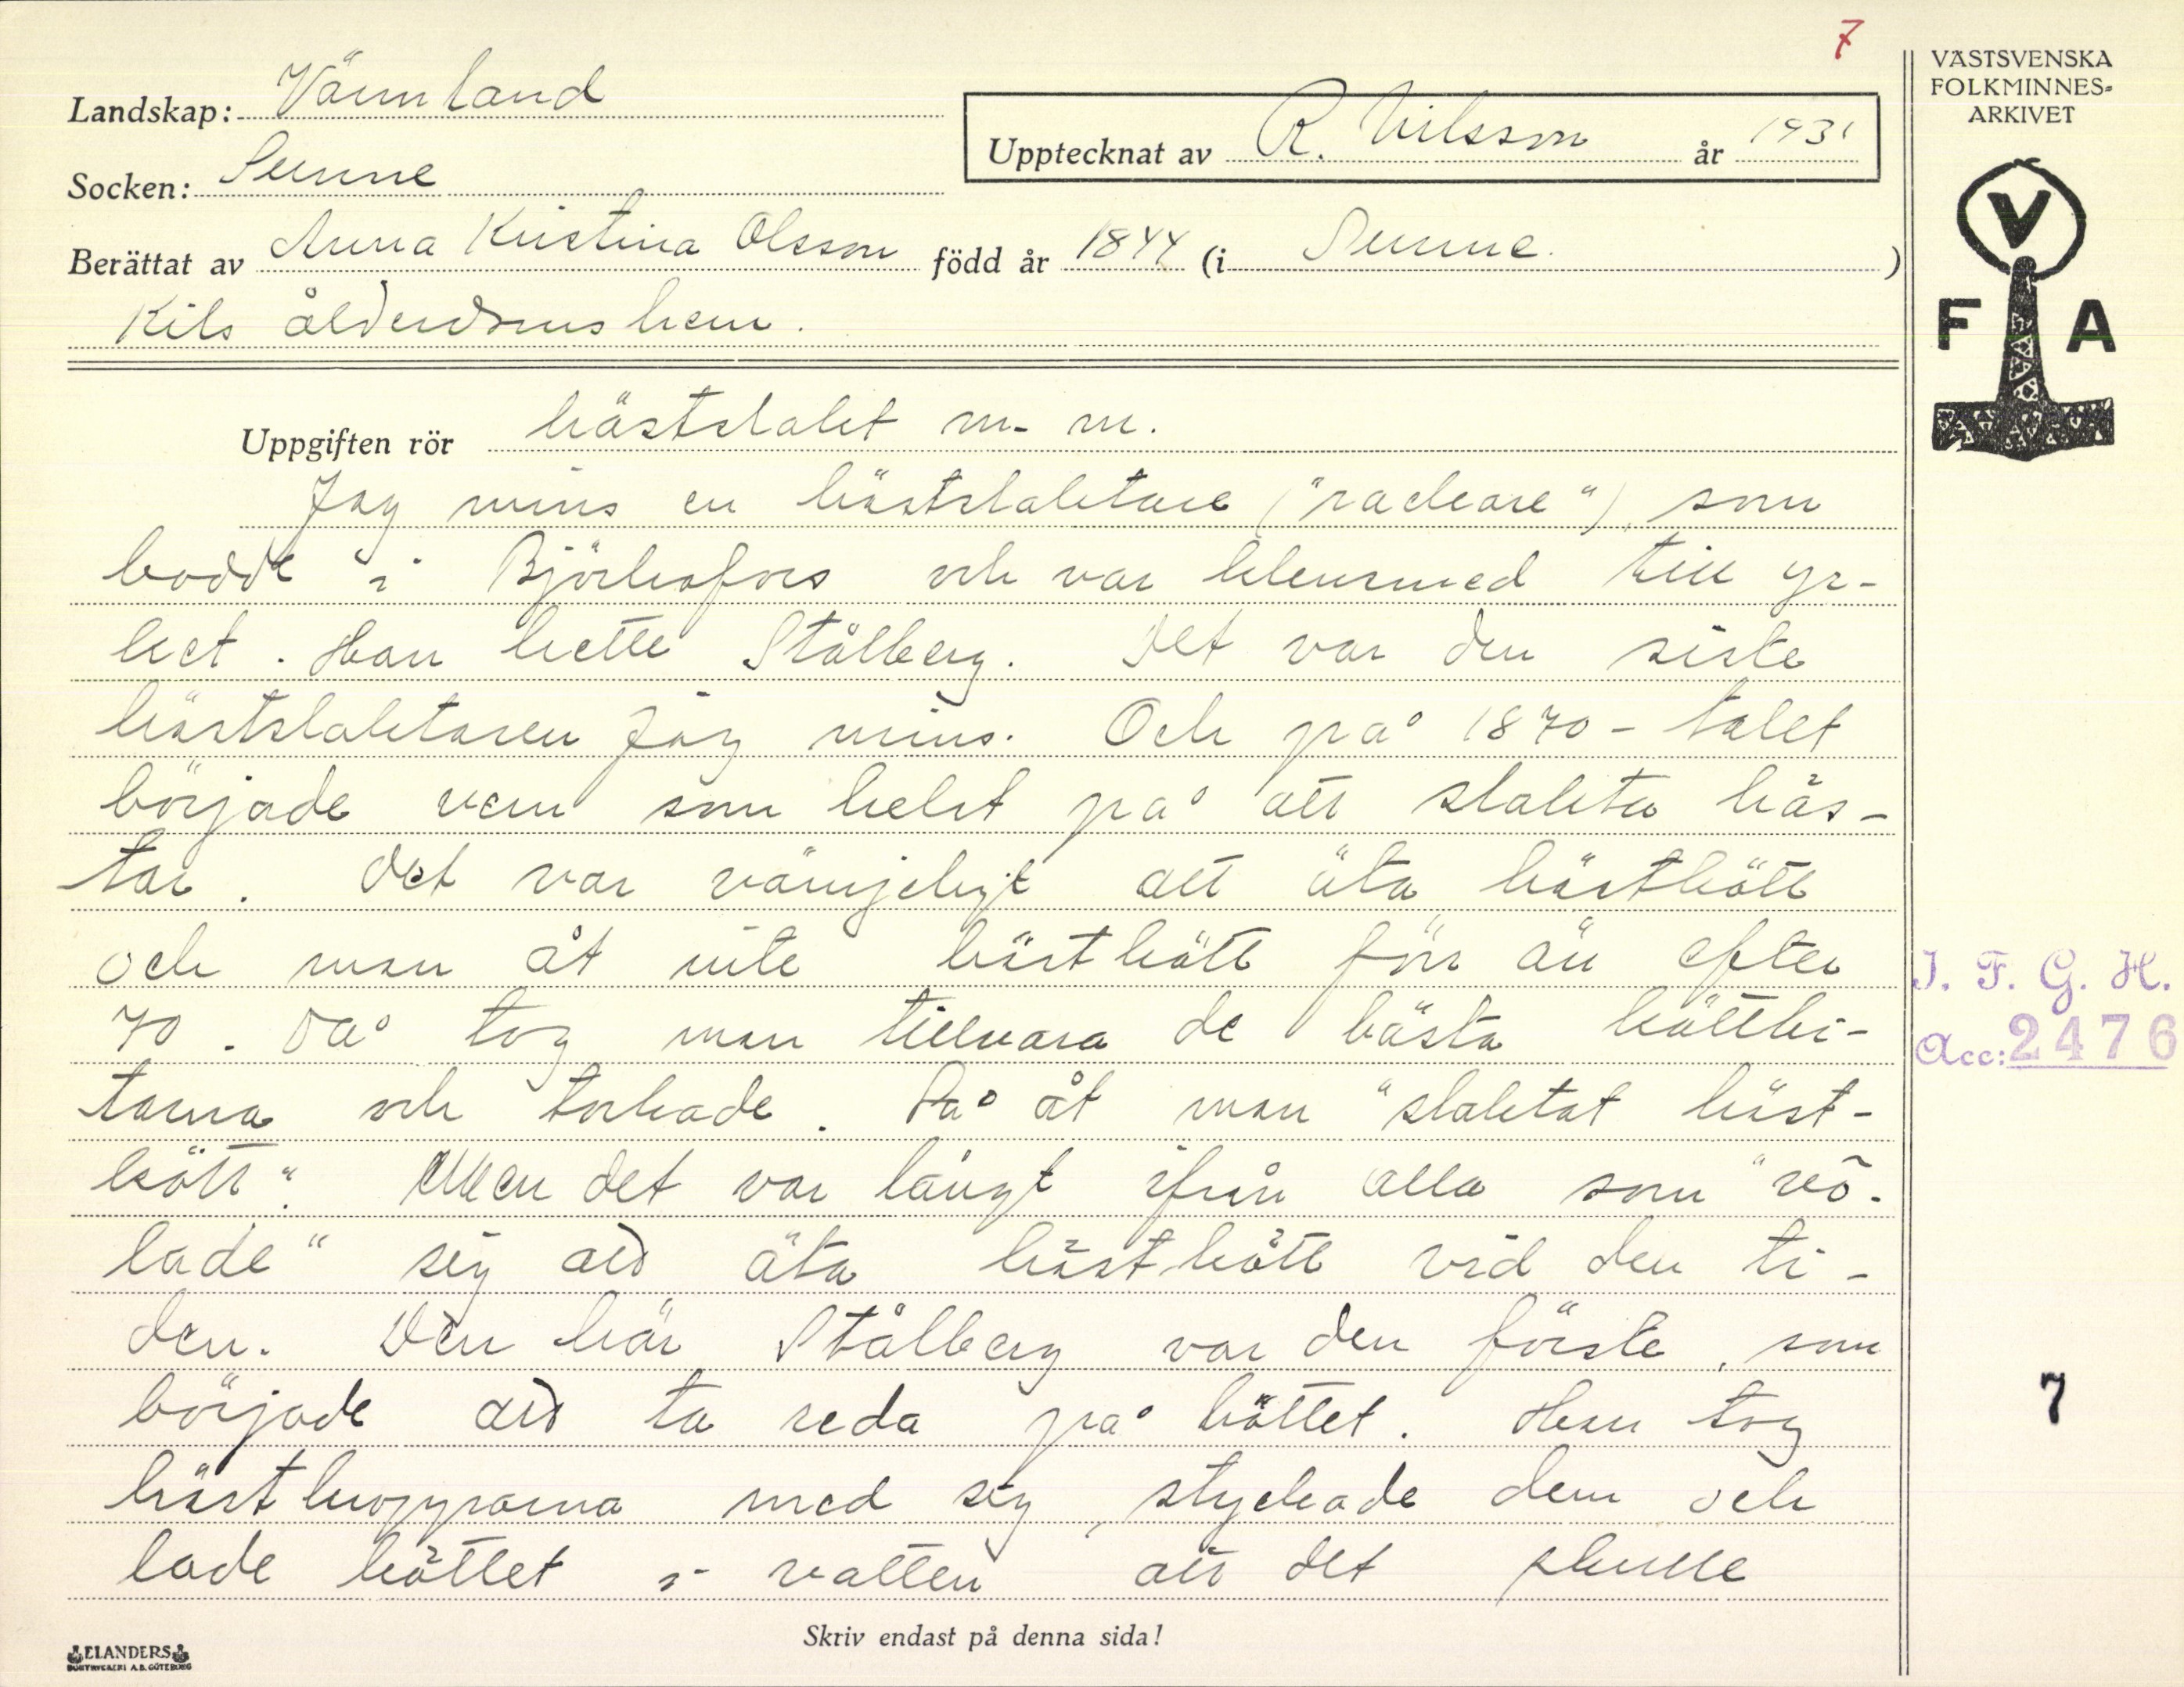 7
VÄSTSVENSKA
FOLKMINNES-
ARKIVET
Landskap: Värmland
Upptecknat av R. Nilsson år 1931
Socken: Sunne
Berättat av Anna Kristina Olsson född år 1844 (i Sunne.)
Kils ålderdomshem.
V
F A
Uppgiften rör hästslakt m. m.
Jag mins en hästslaktare ("rackare"), som
bodde i Björkafors och var klensmed till yr-
ket. Han hette Stålberg. Det var den siste
hästslaktaren jag mins. Och på 1870-talet
började vem som helst på att slakta häs-
tar. Det var vämjeligt att äta hästkött
och man åt inte hästkött förr än efter
70. Då tog man tillvara de bästa köttbi-
tarna och torkade. Då åt man "slaktat häst-
kött". Men det var långt ifrån alla som "vö-
lade" sig att äta hästkött vid den ti-
den. Den här Stålberg var den förste, som
började att ta reda på köttet. Han tog
hästkropparna med sig, styckade dem och
lade köttet i vatten att det skulle
I. F. G. H.
Acc: 2476
7
Skriv endast på denna sida!
ELANDERS
BOKTRYCKERI A.B. GÖTEBORG